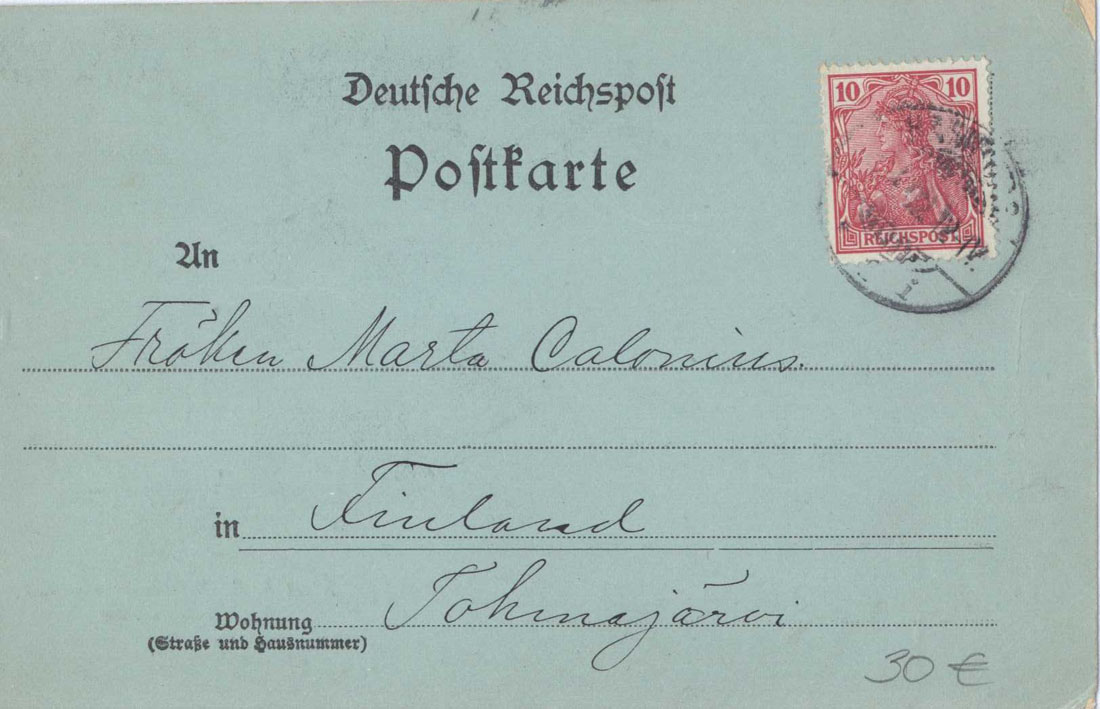 Deutsche Reichspost
Postkarte
10 10
REICHSPOST
An
Fröken Marta Calonius.
in Finland
Wohnung Tohmajärvi
(Straße und Hausnummer)
30 €